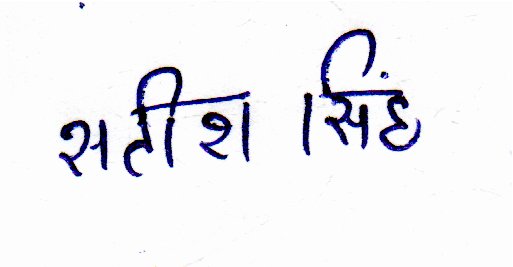 सतीश सिंह